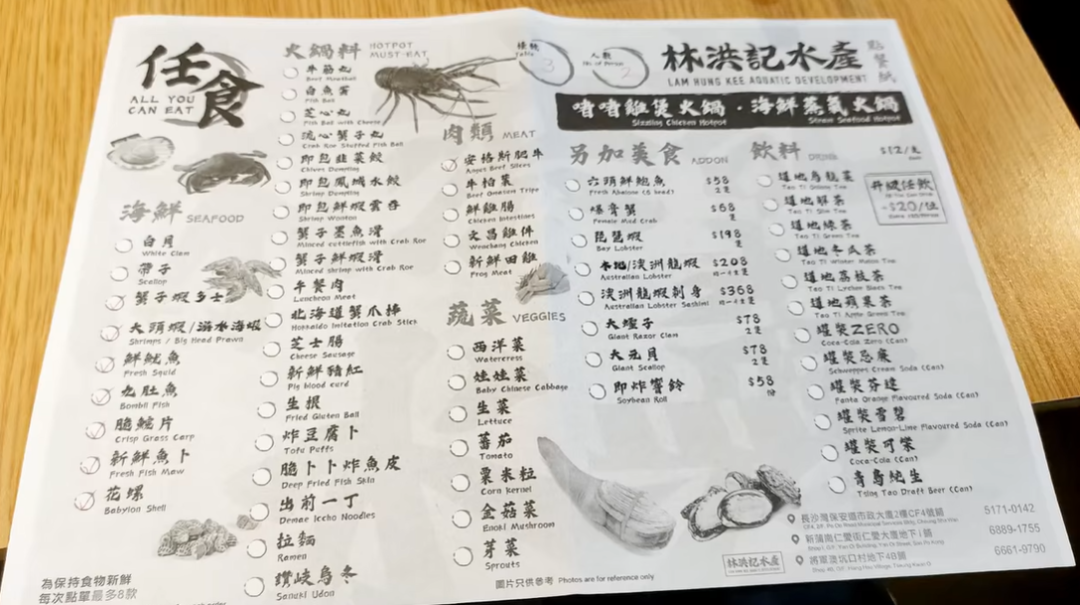 任食
ALL YOU
CAN EAT
海鮮 SEAFOOD
白貝
White Clam
帶子
Scallop
蟹子蝦多士
大頭蝦/溺水海蝦
Shrimps / Big Head Prawn
鮮魷魚
Fresh Squid
九肚魚
Bombil Fish
脆鯇片
Crisp Grass Carp
新鮮魚卜
Fresh Fish Maw
花螺
Babylon Shell
為保持食物新鮮
每次點單最多8款
火鍋料 HOTPOT
MUST-EAT
牛筋丸
Beef Meatball
白魚蛋
Fish Ball
芝心丸
Fish Ball with Cheese
流心蟹子丸
Crab Roe Stuffed Fish Ball
即包韭菜餃
Chives Dumpling
即包鳳城水餃
Shrimp Dumpling
即包鮮蝦雲吞
Shrimp Wonton
蟹子墨魚滑
Minced cuttlefish with Crab Roe
蟹子鮮蝦滑
Minced shrimp with Crab Roe
午餐肉
Luncheon Meat
北海道蟹爪棒
Hokkaido Imitation Crab Stick
芝士腸
Cheese Sausage
新鮮豬紅
Pig blood curd
生根
Fried Gluten Ball
炸豆腐卜
Tofu Puffs
脆卜卜炸魚皮
Deep Fried Fish Skin
出前一丁
Demae Iccho Noodles
拉麵
Ramen
讚岐烏冬
Sanuki Udon
肉類 MEAT
安格斯肥牛
Angus Beef Slices
牛柏葉
Beef Omasum Tripe
鮮雞腸
Chicken Intestines
文昌雞件
Wenchang Chicken
新鮮田雞
Frog Meat
蔬菜 VEGGIES
西洋菜
Watercress
娃娃菜
Baby Chinese Cabbage
生菜
Lettuce
蕃茄
Tomato
粟米粒
Corn Kernel
金菇菜
Enoki Mushroom
芽菜
Sprouts
檯號
Table
3
人數
No. of Person
2
林洪記水產
LAM HUNG KEE AQUATIC DEVELOPMENT
點餐紙
啫啫雞煲火鍋・海鮮蒸氣火鍋
Sizzling Chicken Hotpot
Steam Seafood Hotpot
另加美食 ADDON
六頭鮮鮑魚 $58
Fresh Abalone (6 head) 2隻
爆膏蟹 $68
Female Mud Crab 隻
琵琶蝦 $198
Bay Lobster 隻
本地/澳洲龍蝦 $208
Australian Lobster
澳洲龍蝦刺身 $368
Australian Lobster Sashimi
大蟶子 $78
Giant Razor Clam 2隻
大元貝 $78
Giant Scallop 2隻
即炸響鈴 $58
Soybean Roll 份
飲料 DRINK $12/支
道地烏龍茶
Tao Ti Oolong Tea
道地解茶
Tao Ti Slim Tea
道地綠茶
Tao Ti Green Tea
道地冬瓜茶
Tao Ti Winter Melon Tea
道地荔枝茶
Tao Ti Lychee Black Tea
道地蘋果茶
Tao Ti Apple Green Tea
罐裝ZERO
Coca-Cola Zero (Can)
罐裝忌廉
Schweppes Cream Soda (Can)
罐裝芬達
Fanta Orange Flavoured Soda (Can)
罐裝雪碧
Sprite Lemon-Lime Flavoured Soda (Can)
罐裝可樂
Coca-Cola (Can)
青島純生
Tsing Tao Draft Beer (Can)
升級任飲
$20/位
圖片只供參考 Photos are for reference only
林洪記水產
長沙灣保安道市政大廈2樓CF4號鋪 5171-0142
新蒲崗仁愛街仁愛大廈地下1鋪 6889-1755
將軍澳坑口村地下4B鋪 6661-9790